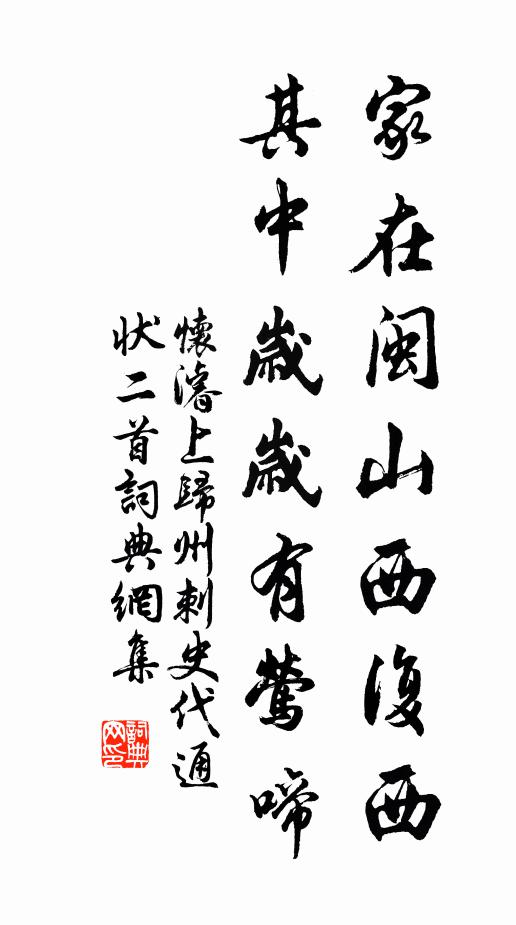 家在闽山西復西
其中歲歲有鶯啼
懷濬上歸州刺史代通
狀二首詞典網集
詞典
网印